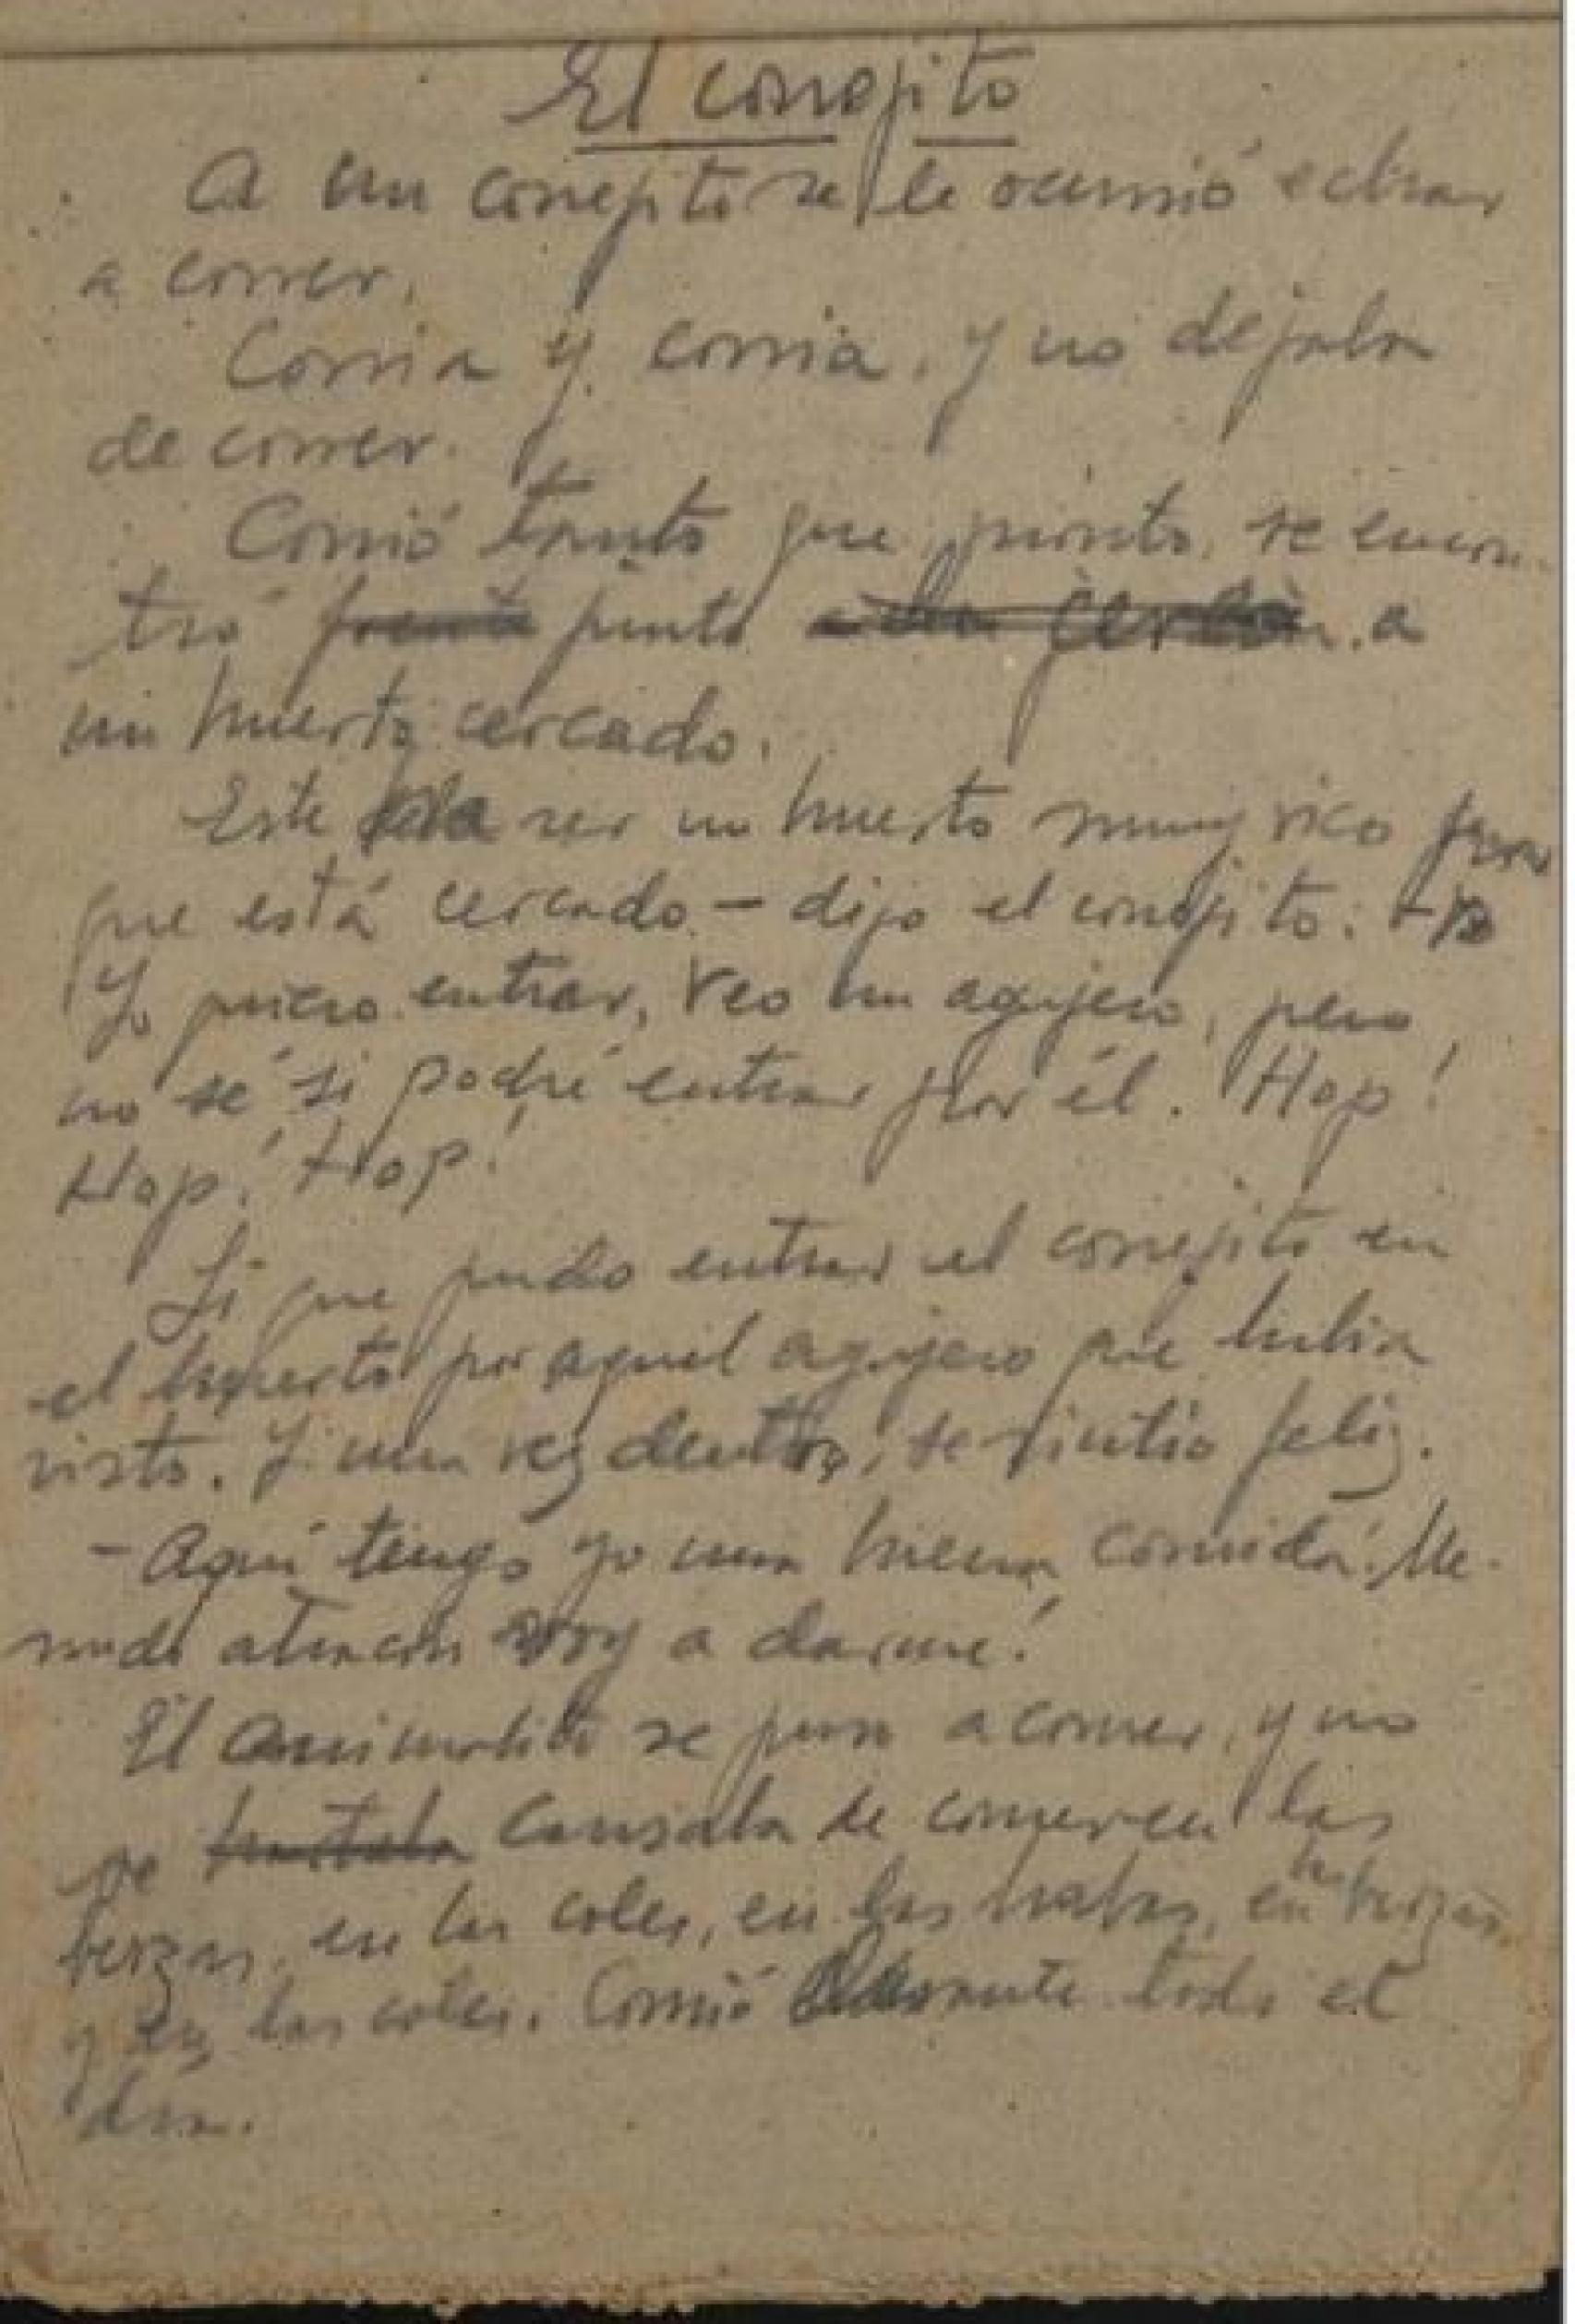 El conejito
A un conejito se le ocurrió echar
a correr.
Corria y corria, y no dejaba
de correr.
Corrió tanto que pronto, se encon-
tró frente junto a la cerca a
un huerto cercado.
Este ser un huerto muy rico por
que está cercado - dijo el conejito. -
Yo quiero entrar, Veo un agujero, pero
no sé si podré entrar por él. Hop!
Hop! Hop!
Si que pudo entrar el conejito en
el huerto por aquel agujero que habia
visto. Y una vez dentro, se sintio feliz.
- Aqui tengo yo una buena comida. Me-
nudo atracón voy a darme!
El animalito se puso a comer, y no
se hartaba cansaba de comer en las
berzas, en las coles, en las habas, en las berzas,
y en las coles. Comió durante todo el
dia.